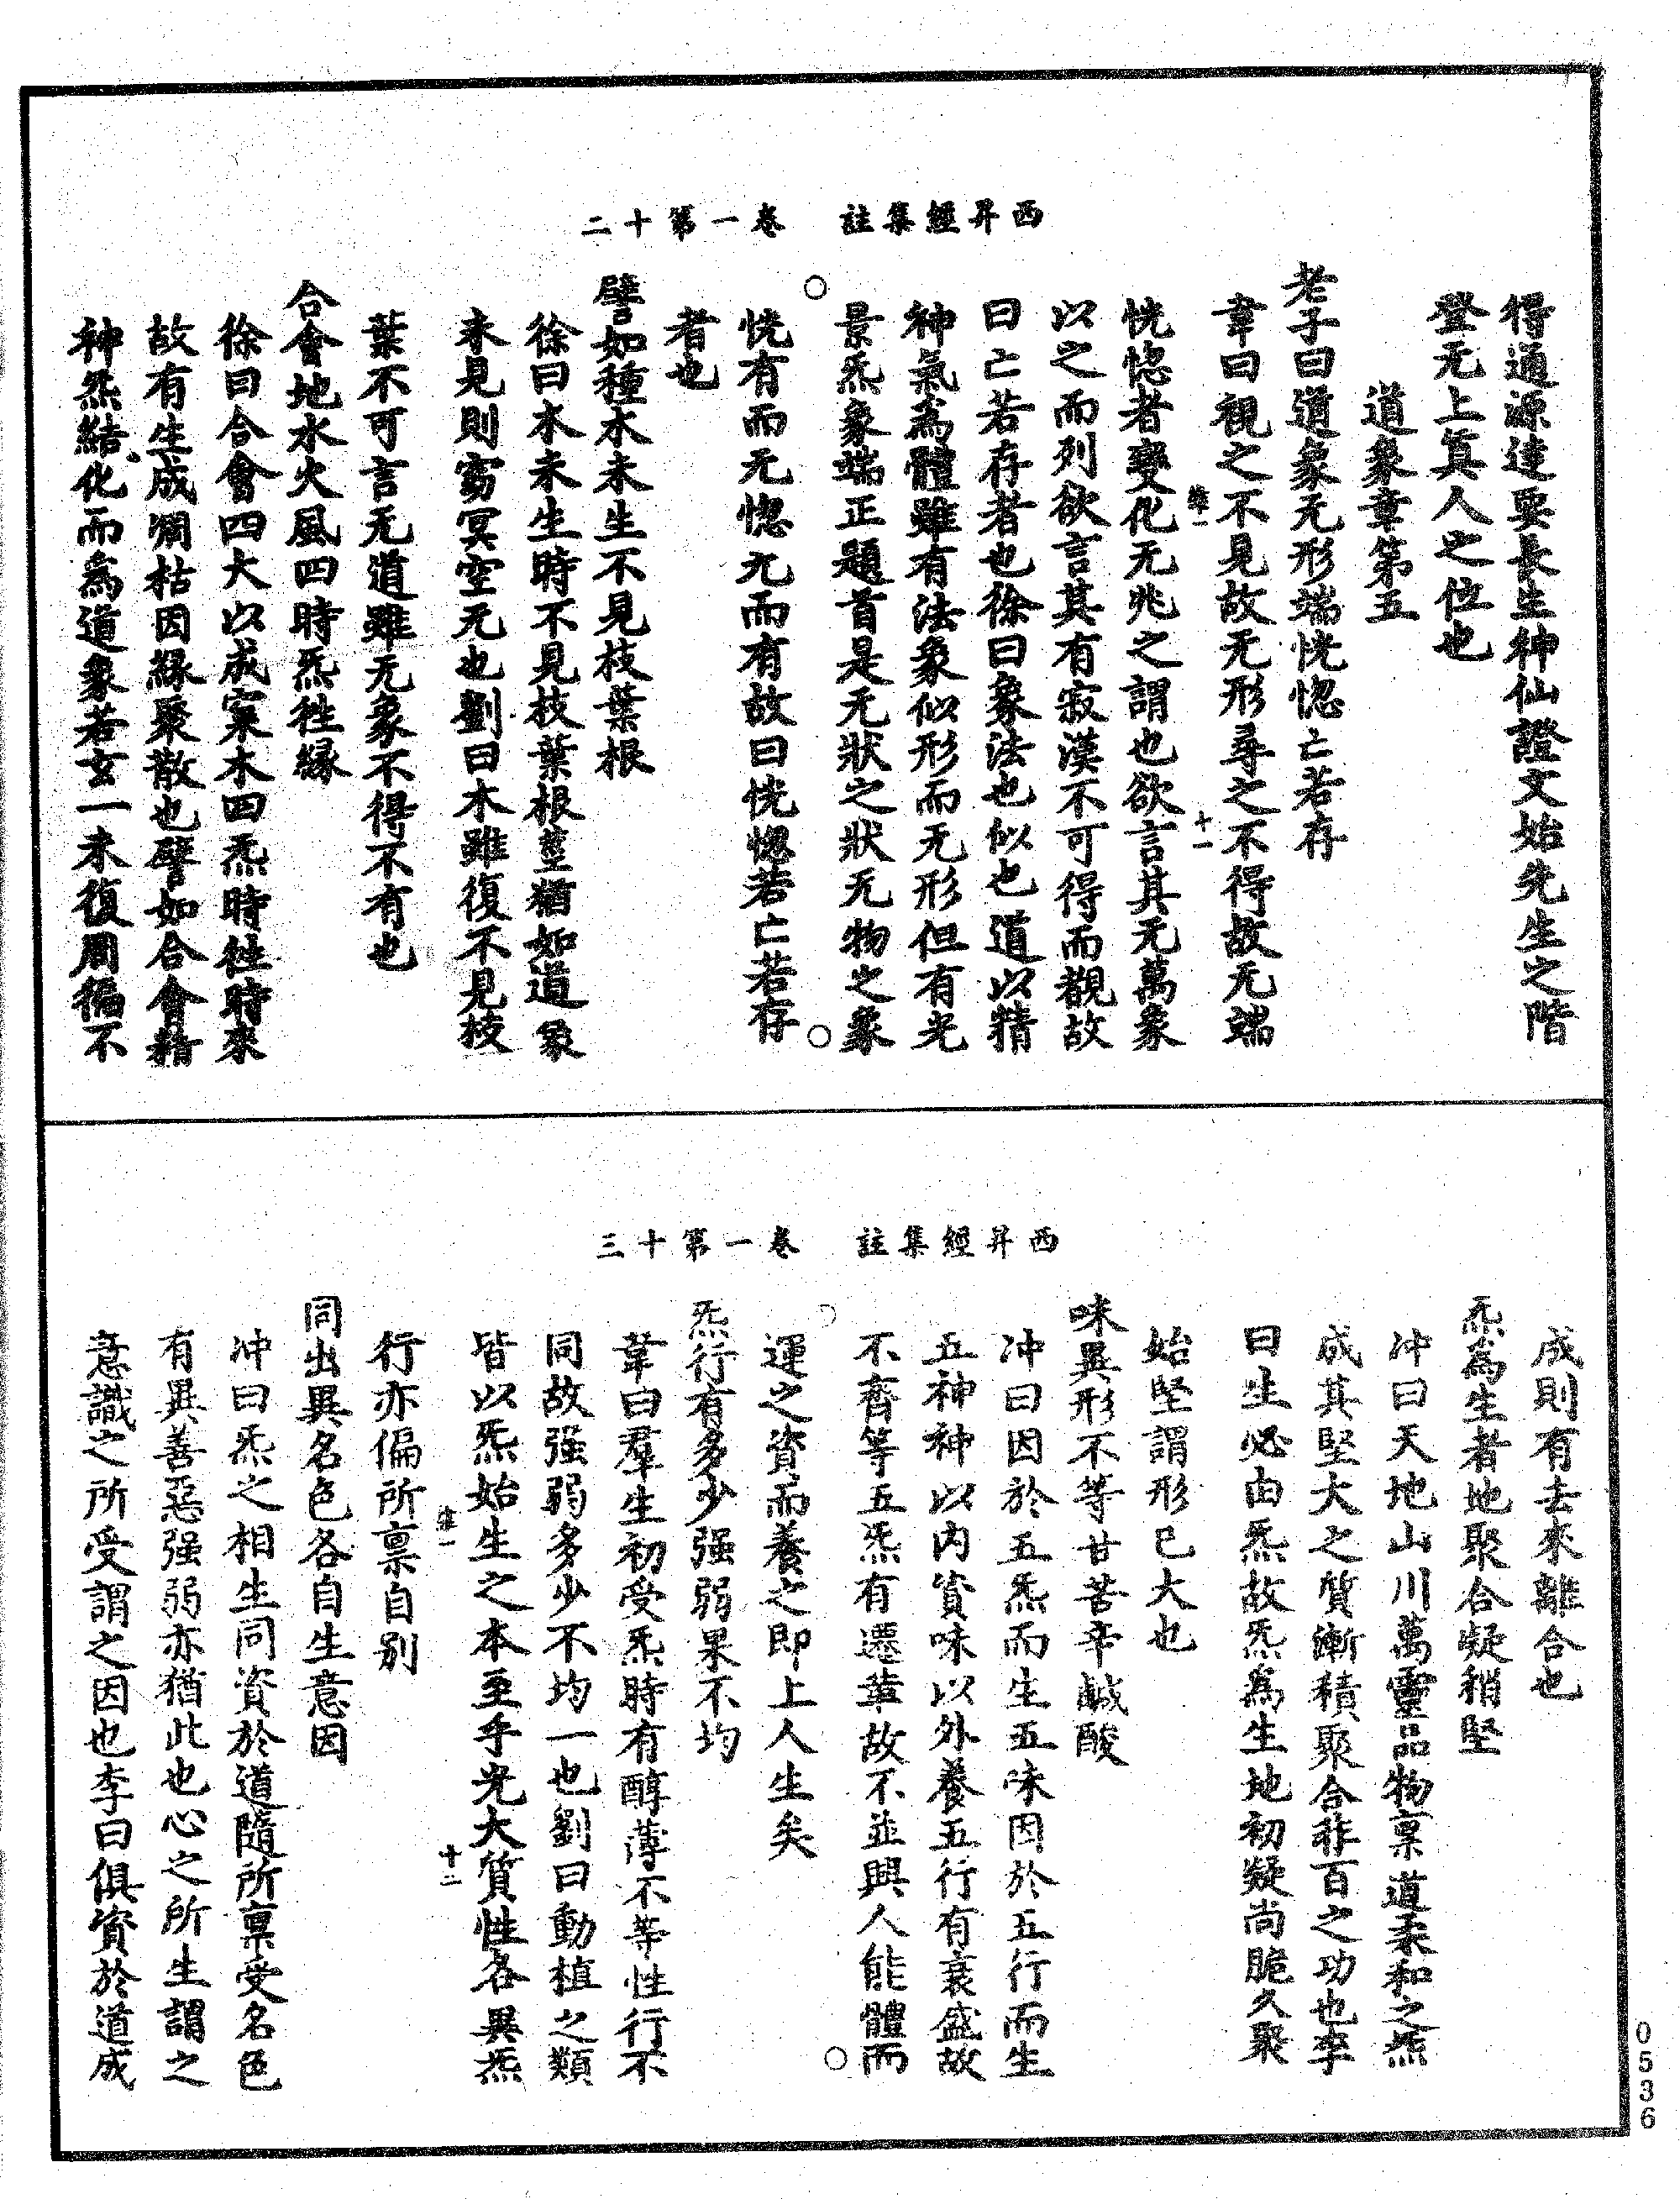 西昇經集註 卷一第十二
得通源達要長生神仙證文始先生之階
登无上真人之位也
道象章第五
老子曰道象无形端恍惚亡若存
韋曰視之不見故无形尋之不得故无端
維一 十一
恍惚者變化无兆之謂也欲言其无萬象
以之而列欲言其有寂漠不可得而觀故
曰亡若存者也徐曰象法也似也道以精
神氣為體雖有法象似形而无形但有光
景炁象端正題首是无狀之狀无物之象
恍有而无惚无而有故曰恍惚若亡若存
者也
譬如種木未生不見枝葉根
徐曰木未生時不見枝葉根莖猶如道象
未見則窈冥空无也劉曰木雖復不見枝
葉不可言无道雖无象不得不有也
合會地水火風四時炁往緣
徐曰合會四大以成寀木四炁時往時來
故有生成凋枯因緣聚散也譬如合會精
神炁結化而為道象若玄一未復周徧不
西昇經集註 卷一第十三
成則有去來離合也
炁為生者地聚合凝稍堅
冲曰天地山川萬靈品物稟道柔和之炁
成其堅大之質漸積聚合非百之功也李
曰生必由炁故炁為生地初凝尚脆久聚
始堅謂形已大也
味異形不等甘苦辛鹹酸
冲曰因於五炁而生五味因於五行而生
五神神以内資味以外養五行有衰盛故
不齊等五炁有遷革故不並興人能體而
運之資而養之即上人生矣
炁行有多少强弱果不均
韋曰羣生初受炁時有醇薄不等性行不
同故强弱多少不均一也劉曰動植之類
皆以炁始生之本至乎光大質性各異炁
維一 十二
行亦偏所稟自別
同出異名色各自生意因
冲曰炁之相生同資於道隨所稟受名色
有異善惡强弱亦猶此也心之所生謂之
意識之所受謂之因也李曰俱資於道成
0536